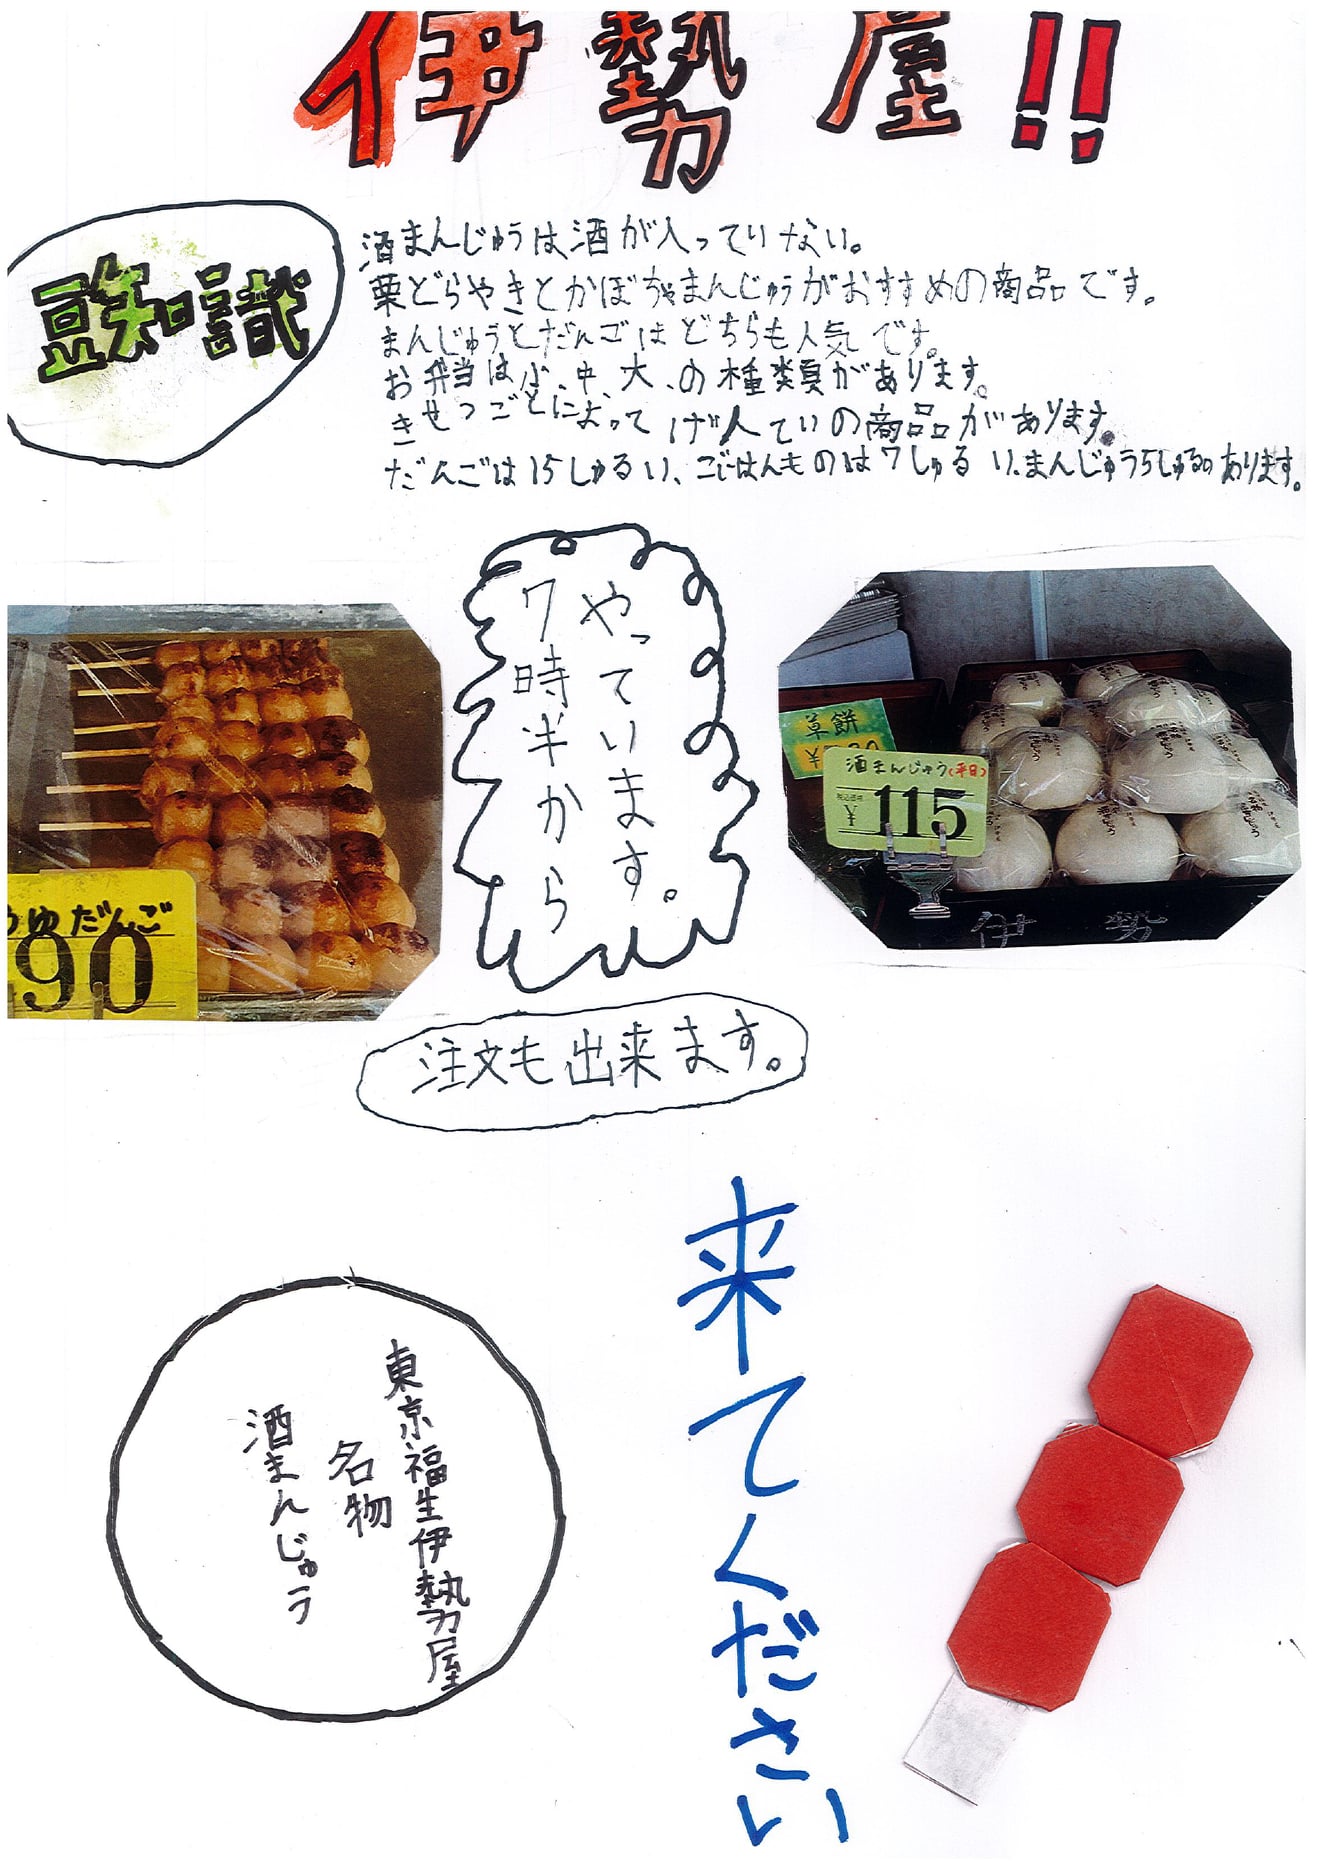 伊勢屋!!
豆知識
酒まんじゅうは酒が入っていない。
栗どらやきとかぼちゃまんじゅうがおすすめの商品です。
まんじゅうとだんごはどちらも人気です。
お弁当は小、中、大、の種類があります。
きせつごとによってげんていの商品があります。
だんごは15しゅるい、ごはんものは7しゅるい、まんじゅう5しゅるいあります。
やっています。
7時半から
ゆだんご
90
草餅
酒まんじゅう(平日)
税込価格
¥115
伊勢
注文も出来ます。
来てください
東京福生伊勢屋
名物
酒まんじゅう